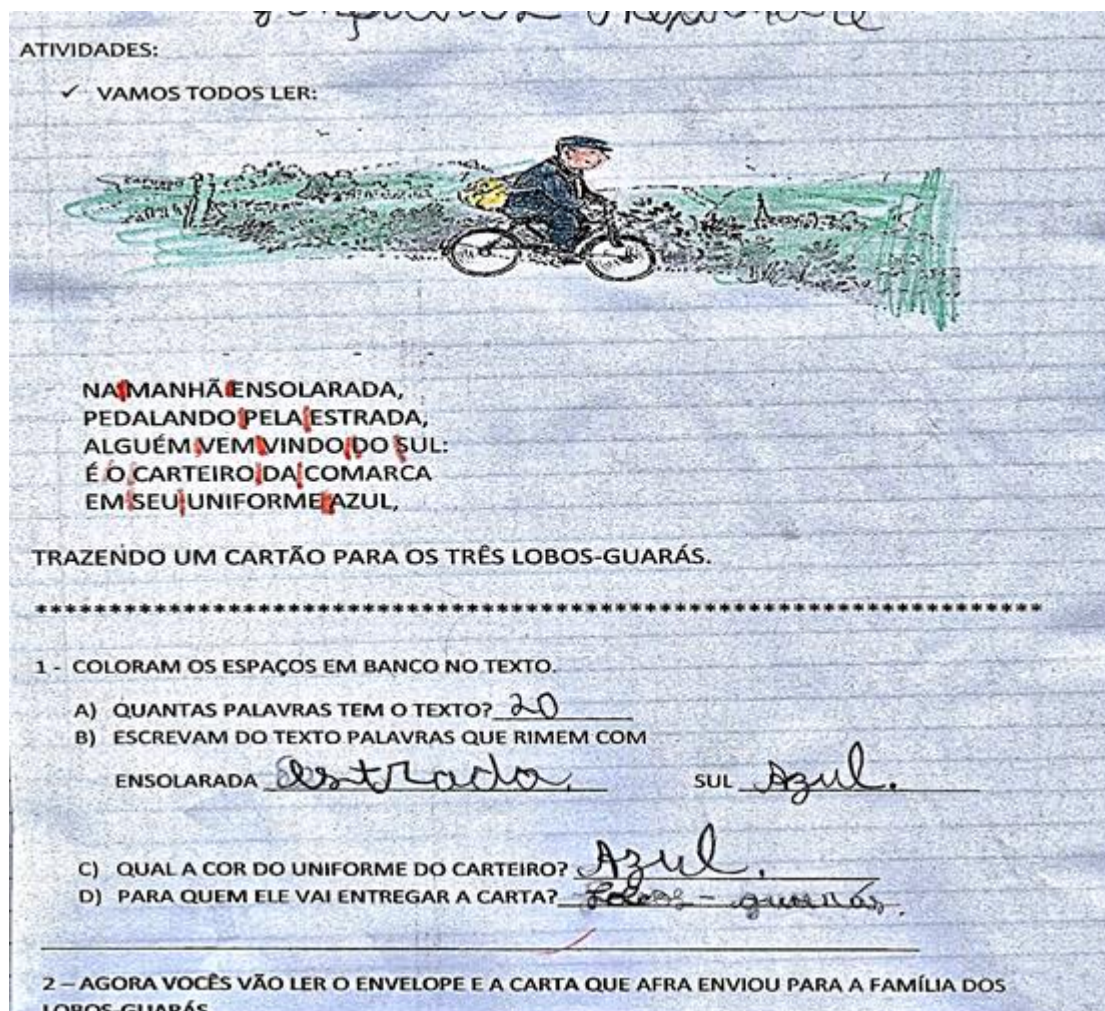 ATIVIDADES:
✓ VAMOS TODOS LER:
NA MANHÃ ENSOLARADA,
PEDALANDO PELA ESTRADA,
ALGUÉM VEM VINDO DO SUL:
É O CARTEIRO DA COMARCA
EM SEU UNIFORME AZUL,
TRAZENDO UM CARTÃO PARA OS TRÊS LOBOS-GUARÁS.
************************************************************************
1 - COLORAM OS ESPAÇOS EM BANCO NO TEXTO.
A) QUANTAS PALAVRAS TEM O TEXTO? 20
B) ESCREVAM DO TEXTO PALAVRAS QUE RIMEM COM
ENSOLARADA estrada. SUL Azul.
C) QUAL A COR DO UNIFORME DO CARTEIRO? Azul.
D) PARA QUEM ELE VAI ENTREGAR A CARTA? Lobos - guarás.
2 – AGORA VOCÊS VÃO LER O ENVELOPE E A CARTA QUE AFRA ENVIOU PARA A FAMÍLIA DOS
LOBOS-GUARÁS